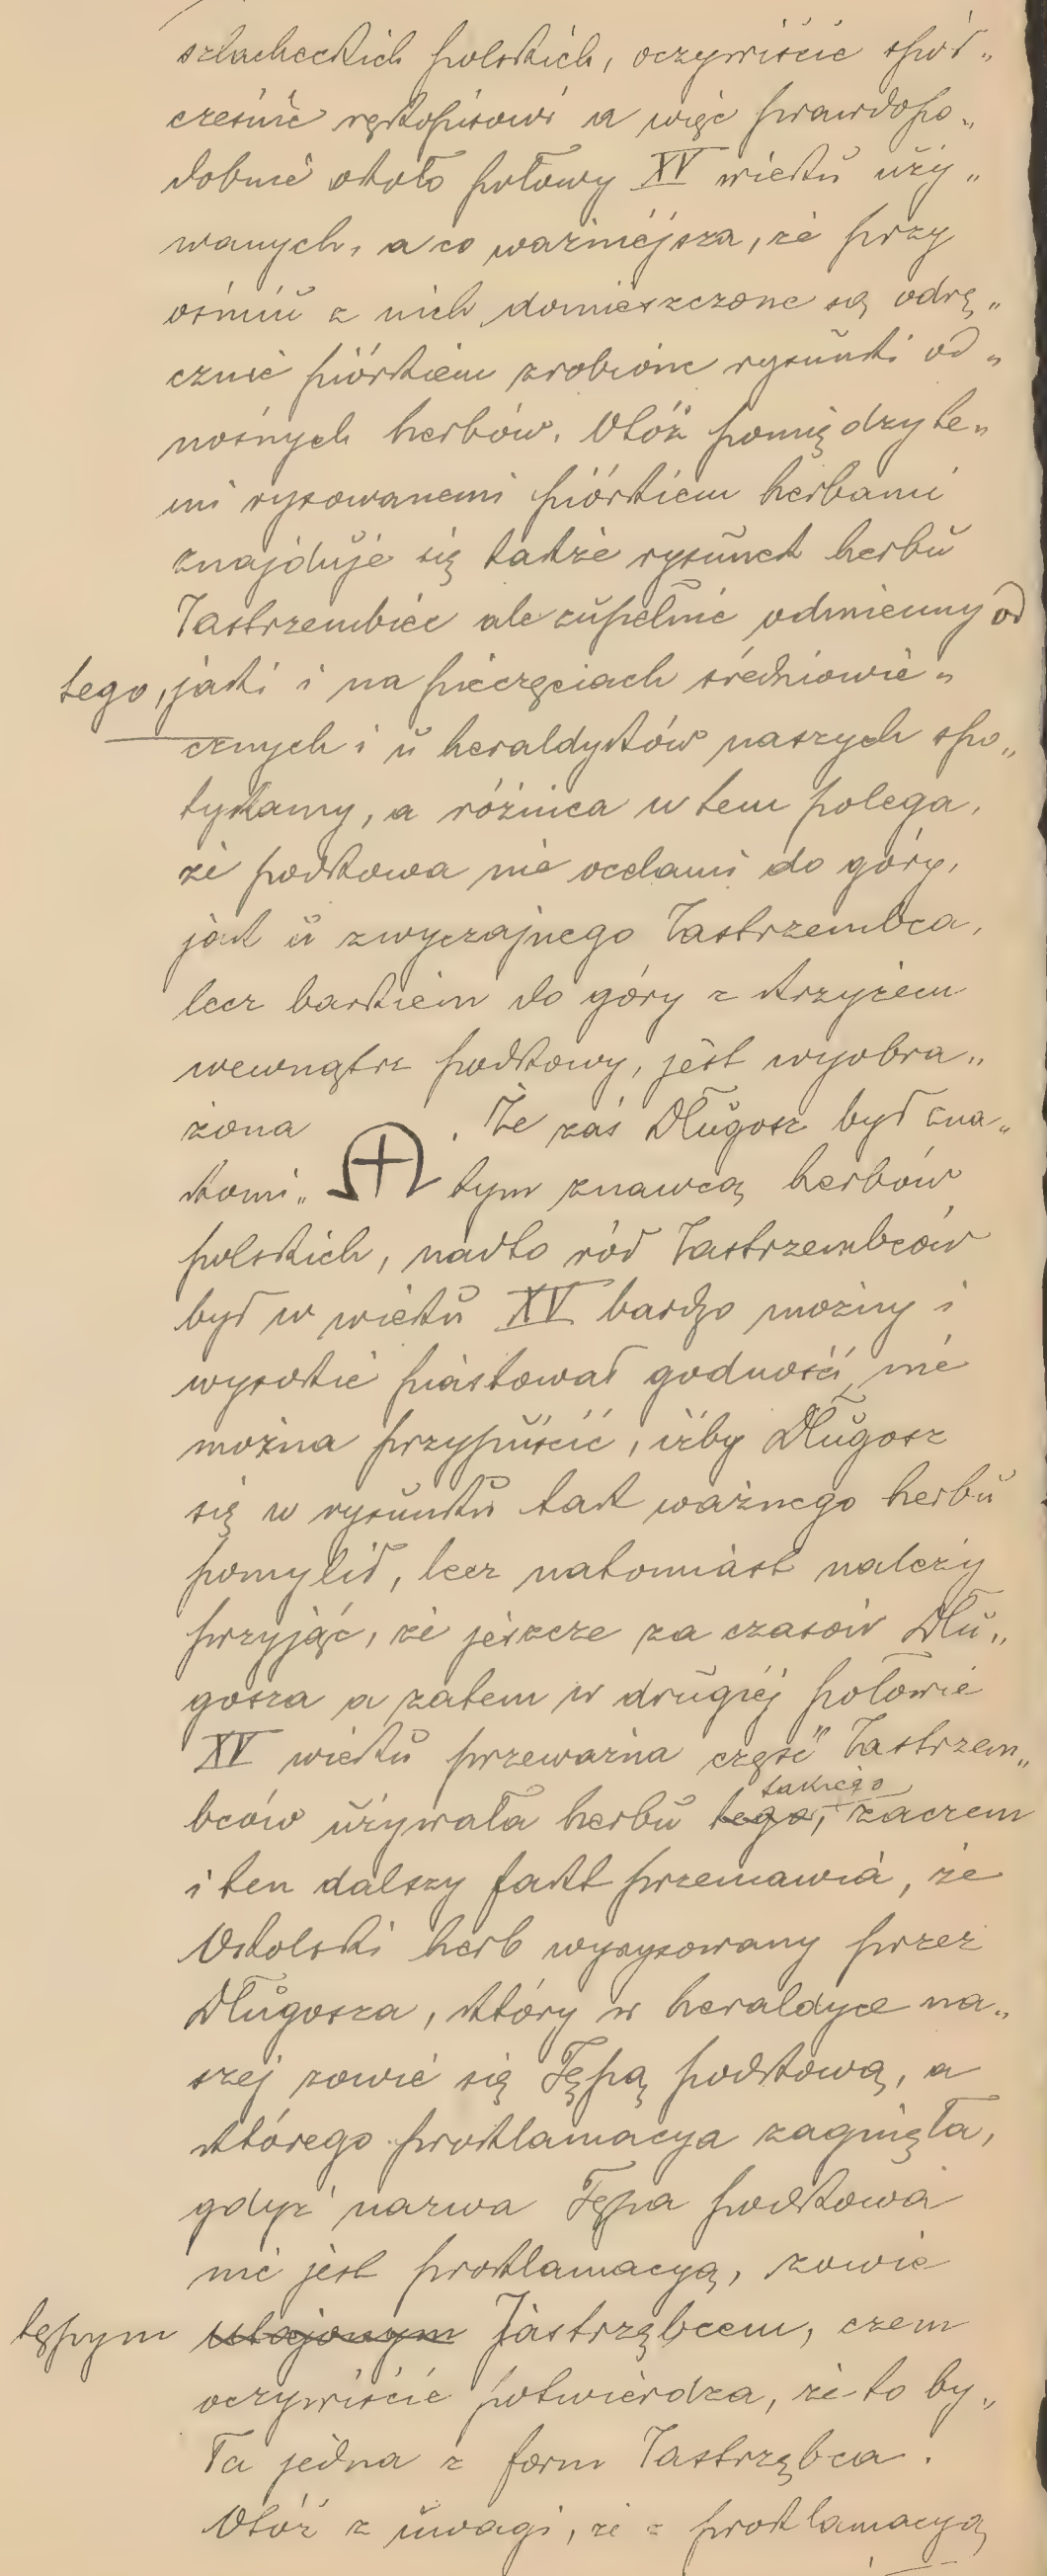 szlacheckich polskich, oczywiście spół„
cześnie rękopisowi a więc prawdopo„
dobnie około połowy XV wieku uży„
wanych, a co ważniejsza, że przy
ośmiu z nich domieszczone są odrę„
cznie piórkiem zrobione rysunki od„
nośnych herbów. Otóż pomiędzy te„
mi rysowanemi piórkiem herbami
znajduje się także rysunek herbu
Jastrzembiec ale zupełnie odmienny od
tego, jaki i na pieczęciach średniowie„
cznych i u heraldyków naszych spo„
tykamy, a różnica w tem polega,
że podkowa nie ocelami do góry,
jak u zwyczajnego Jastrzembca,
lecz barkiem do góry z krzyżem
wewnątrz podkowy, jest wyobra„
żona . Że zaś Długosz był zna„
komi„ tym znawcą herbów
polskich, nadto ród Jastrzembców
był w wieku XV bardzo możny i
wysokie piastował godności, nie
można przypuścić, iżby Długosz
się w rysunku tak ważnego herbu
pomylił, lecz natomiast należy
przyjąć, że jeszcze za czasów Dłu„
gosza a zatem w drugiej połowie
XV wieku przeważna część Jastrzem„
takiego
bców używała herbu tego, zaczem
i ten dalszy fakt przemawia, że
Okolski herb wyrysowany przez
Długosza, który w heraldyce na„
szej zowie się Tępą podkową, a
którego proklamacya zaginęła,
gdyż nazwa Tępa podkowa
nie jest proklamacyą, zowie
tępym utajonym Jastrzębcem, czem
oczywiście potwierdza, że to by„
ła jedna z form Jastrzębca.
Otóż z uwagi, że z proklamacyą